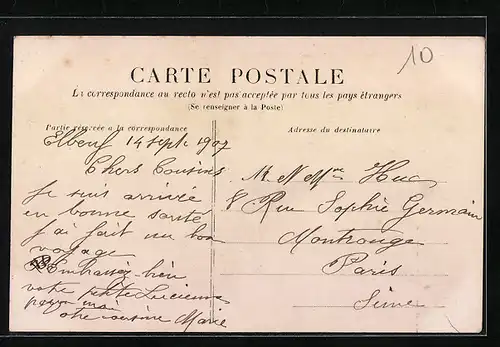 10
CARTE POSTALE
La correspondance au recto n'est pas acceptée par tous les pays étrangers
(Se renseigner à la Poste)
Partie réservée a la correspondance
Adresse du destinataire
Elbeuf 14 Sept. 1907
Chers Cousins
Je suis arrivée
en bonne santé
j'ai fait un bon
voyage
Embrassez bien
votre petite Lucienne
pour moi
votre cousine Marie
M. & Mme Huc
8 Rue Sophie Germain
Montrouge
Paris
Seine